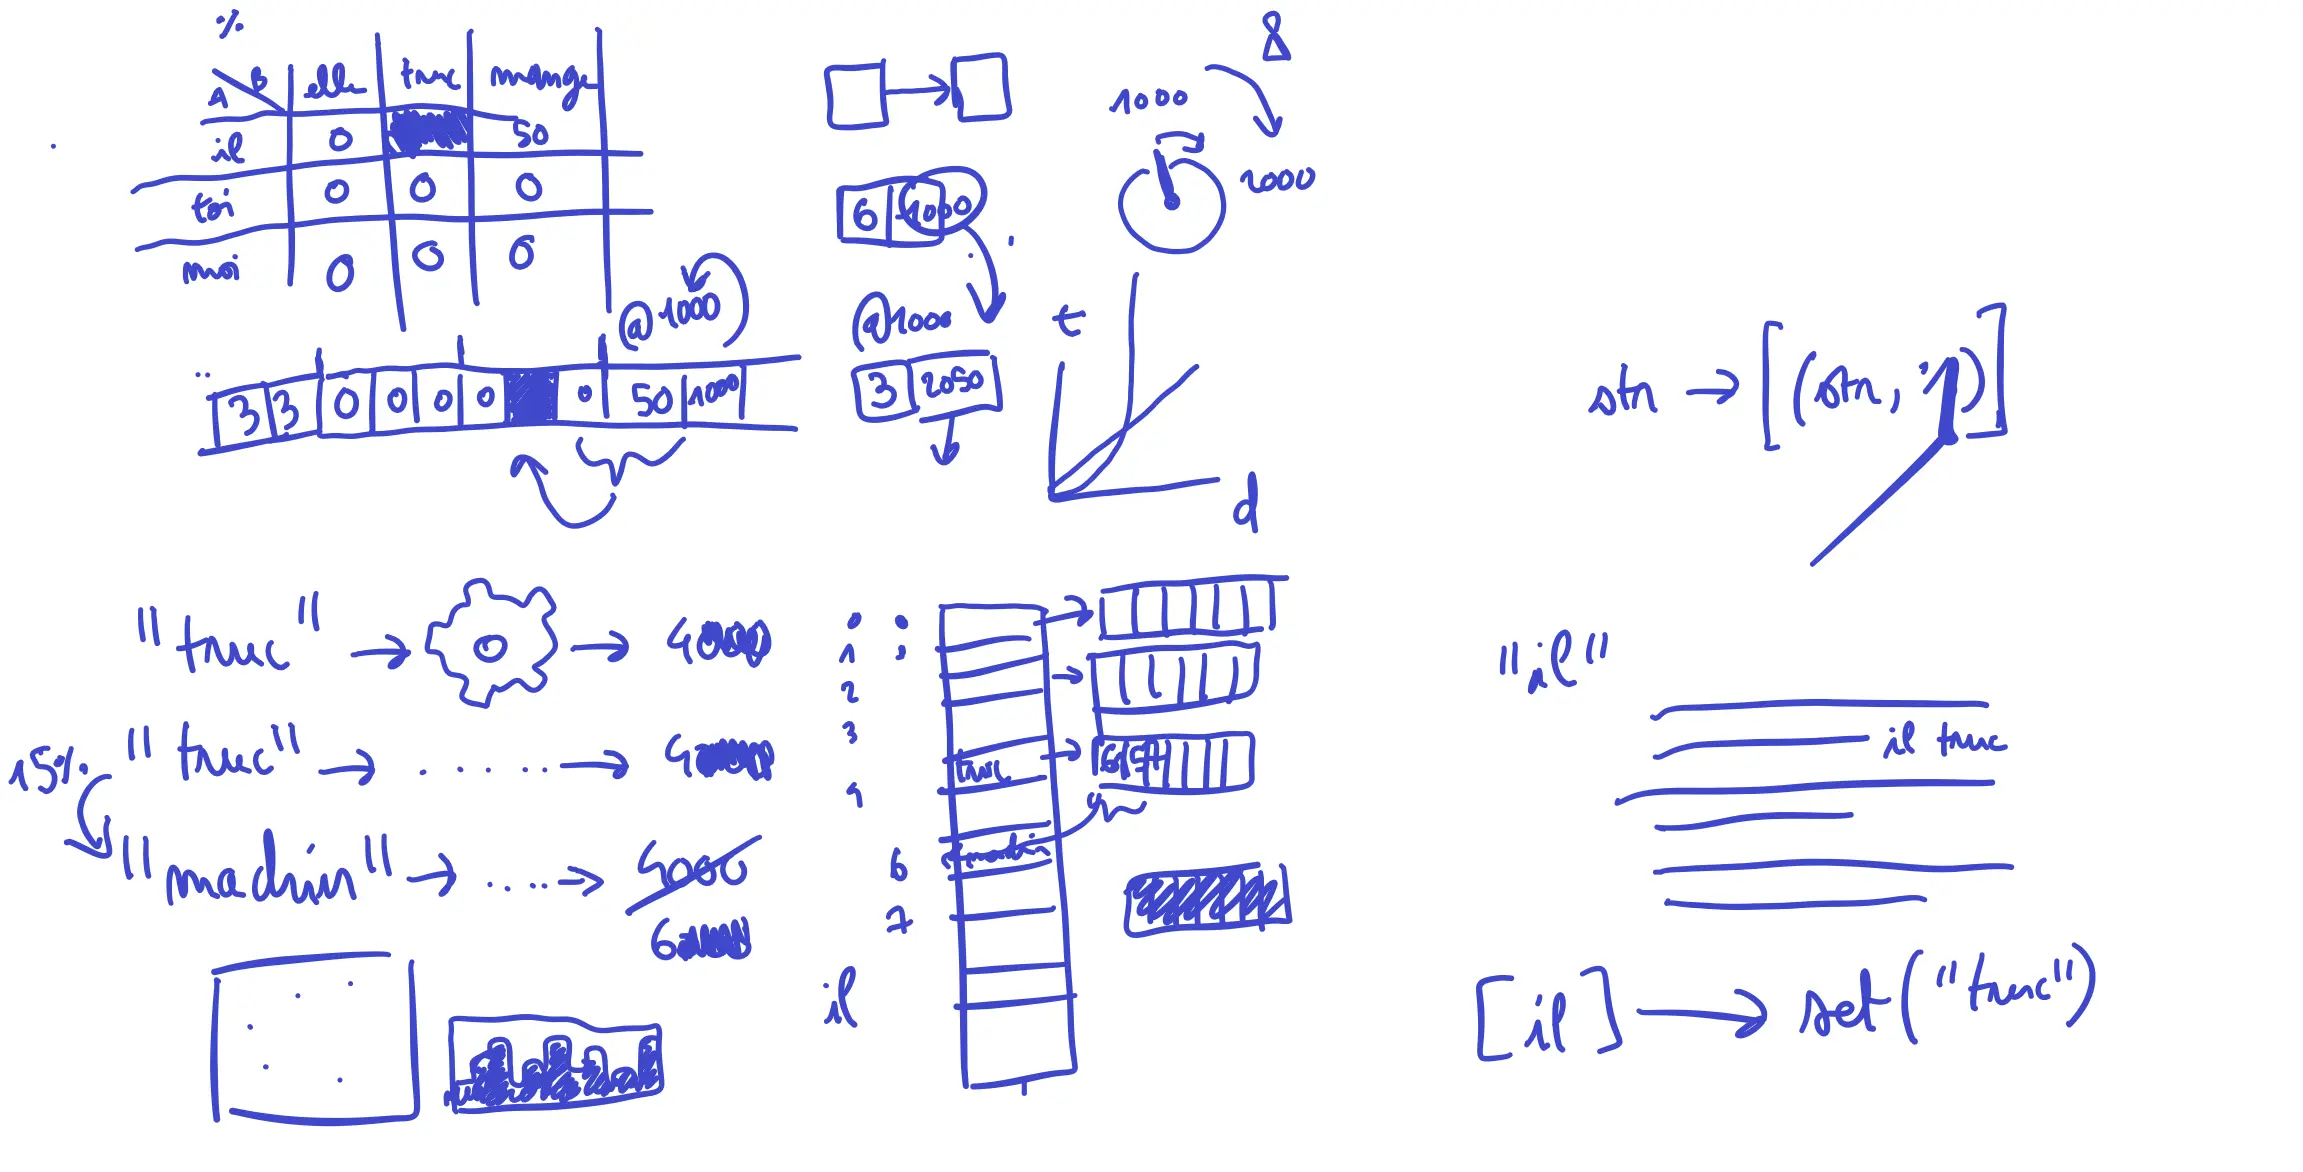 %
A B elle truc mange
il 0 50
toi 0 0 0
moi 0 0 0
@1000
3 3 0 0 0 0 0 50 1000
6 1000
@1000
3 2050
8
1000
2000
t
d
str → [(str, 1)]
"truc" → → 4000
15% "truc" → ...... → 4000
"machin" → ..... → 5000
6000
0
1
2
3
4
6
7
il
truc
machin
"il"
il truc
[il] → set("truc")